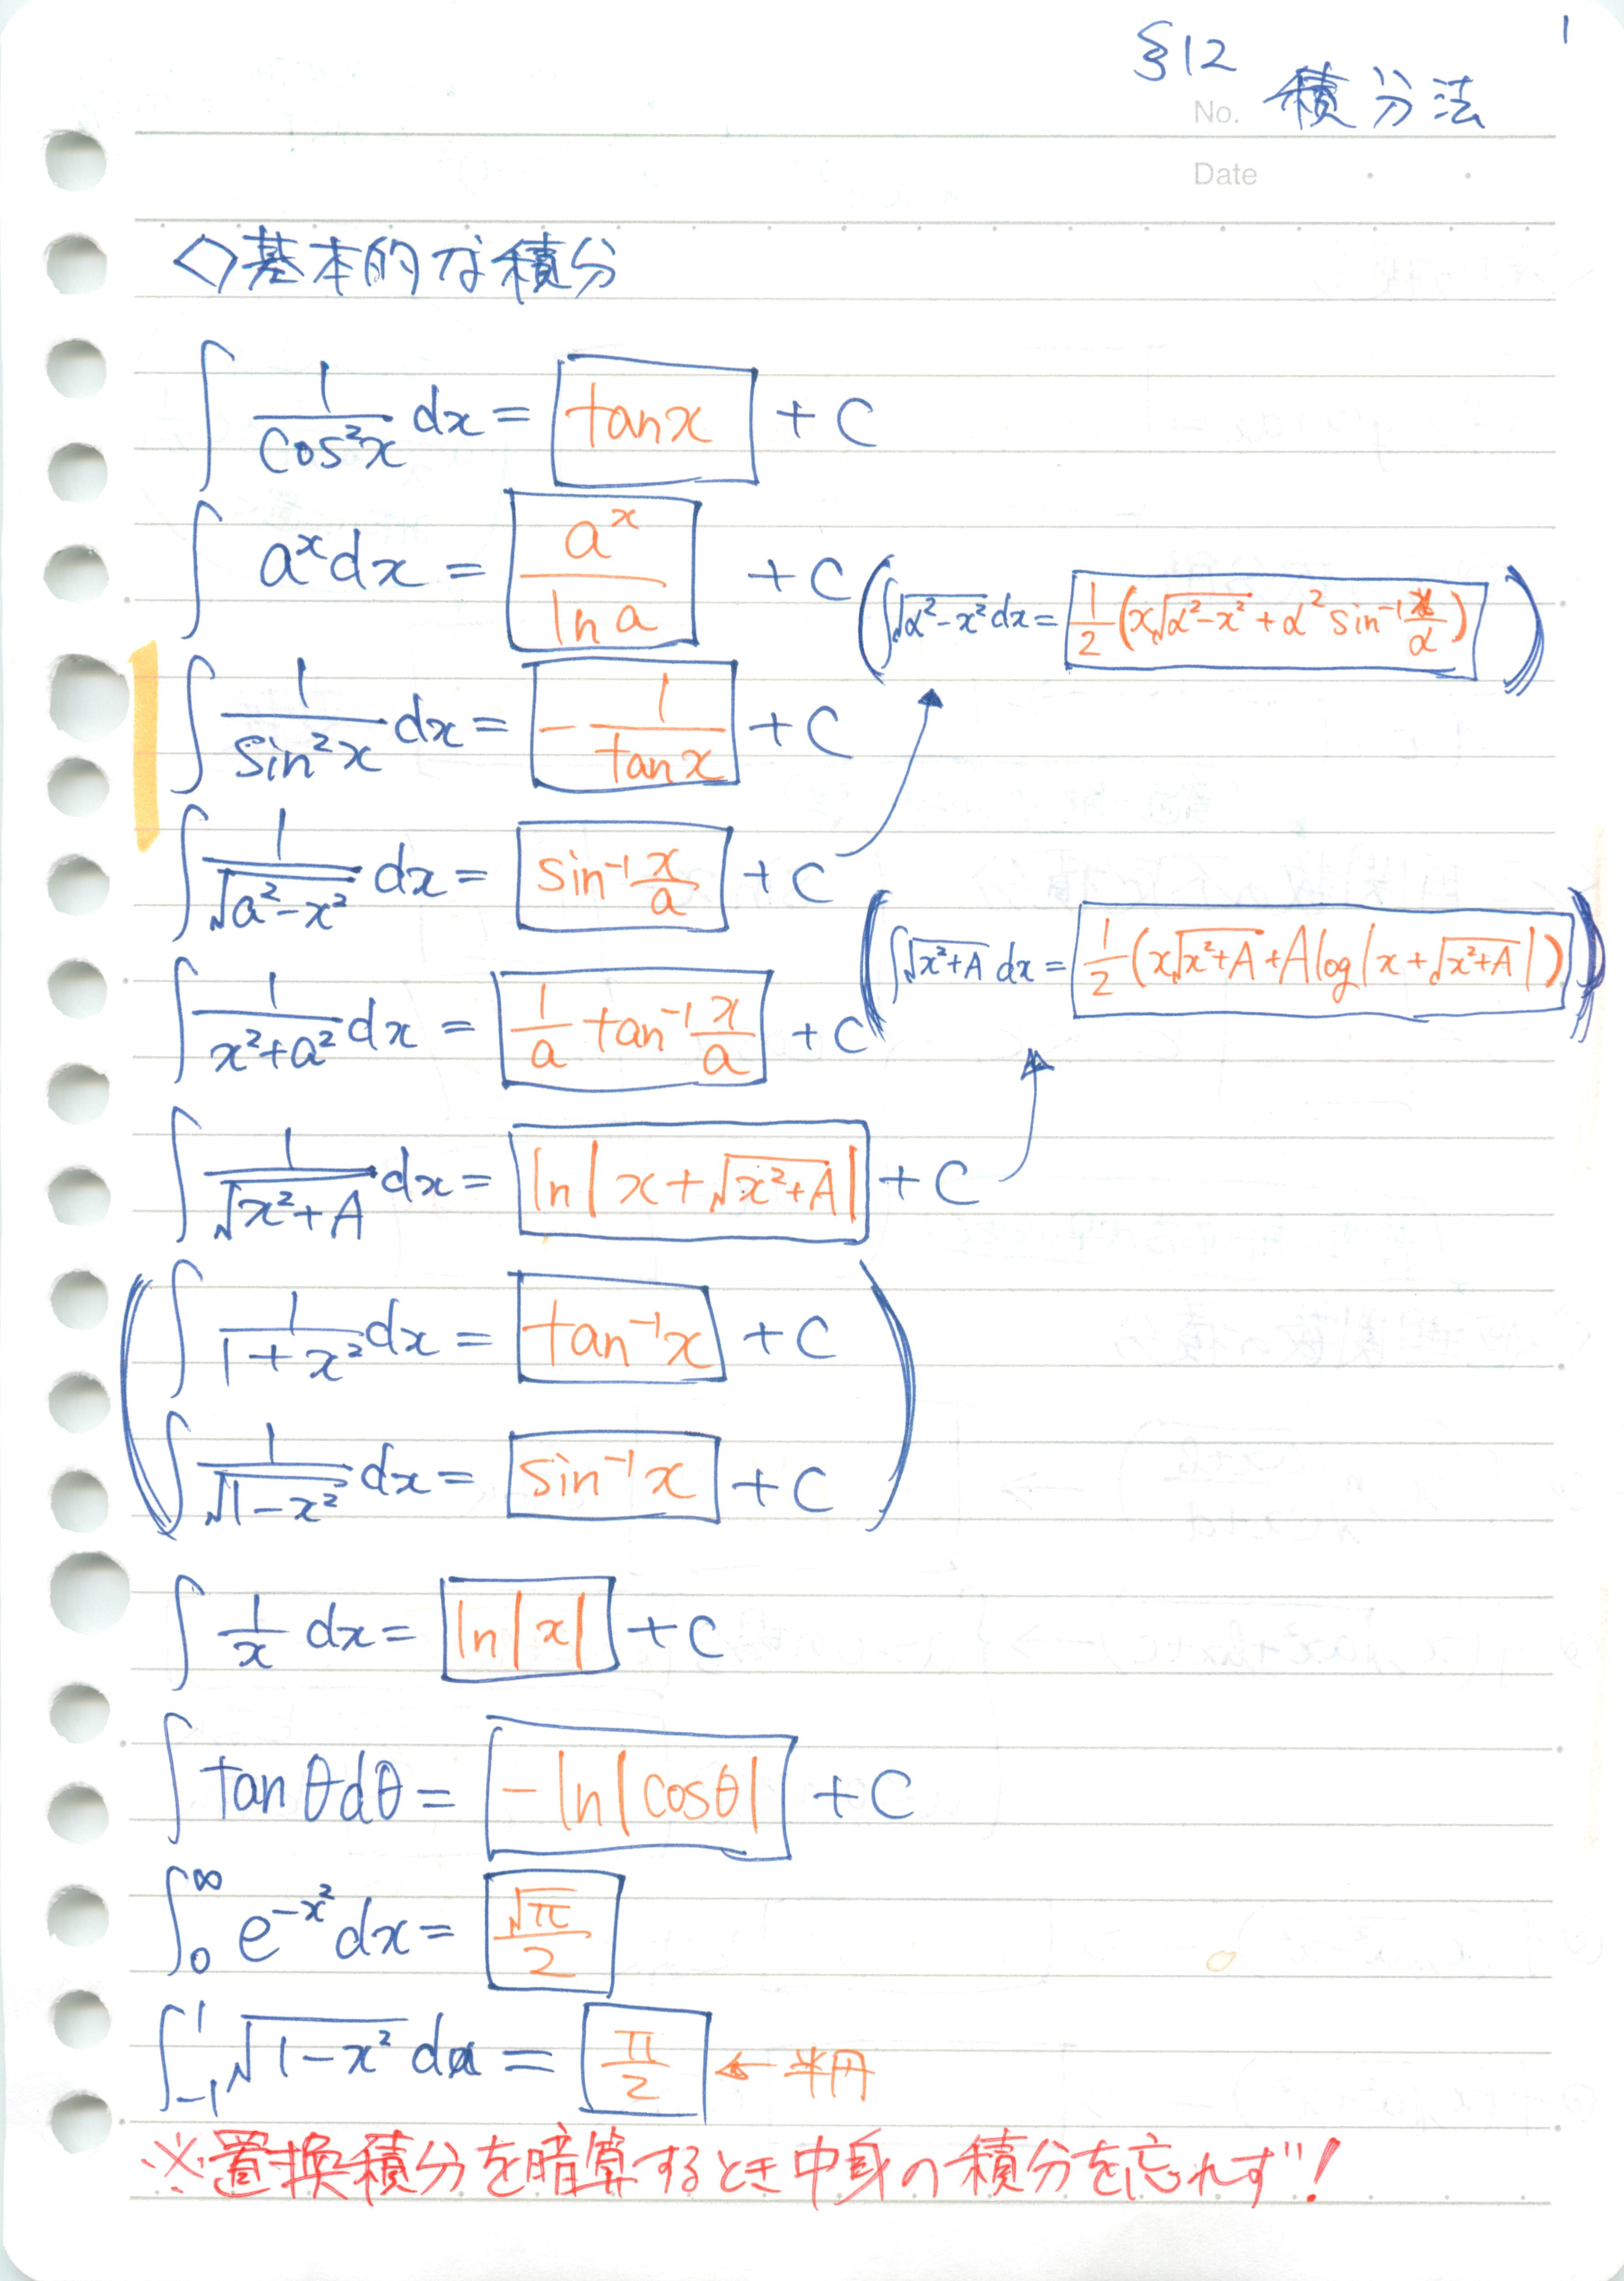 1
§12 積分法
No.
Date
◇基本的な積分
∫ 1/cos²x dx = tanx + C
∫ aˣ dx = aˣ/ln a + C
(∫√(α²-x²) dx = 1/2 (x√(α²-x²) + α² sin⁻¹ x/α))
∫ 1/sin²x dx = - 1/tanx + C
∫ 1/√(a²-x²) dx = sin⁻¹ x/a + C
(∫√(x²+A) dx = 1/2 (x√(x²+A) + A log|x+√(x²+A)|))
∫ 1/(x²+a²) dx = 1/a tan⁻¹ x/a + C
∫ 1/√(x²+A) dx = ln|x+√(x²+A)| + C
(∫ 1/(1+x²) dx = tan⁻¹x + C
∫ 1/√(1-x²) dx = sin⁻¹x + C)
∫ 1/x dx = ln|x| + C
∫ tanθdθ = -ln|cosθ| + C
∫₀^∞ e^(-x²) dx = √π/2
∫₋₁¹ √(1-x²) dx = π/2 ← 半円
※置換積分を暗算するとき中身の積分を忘れず!